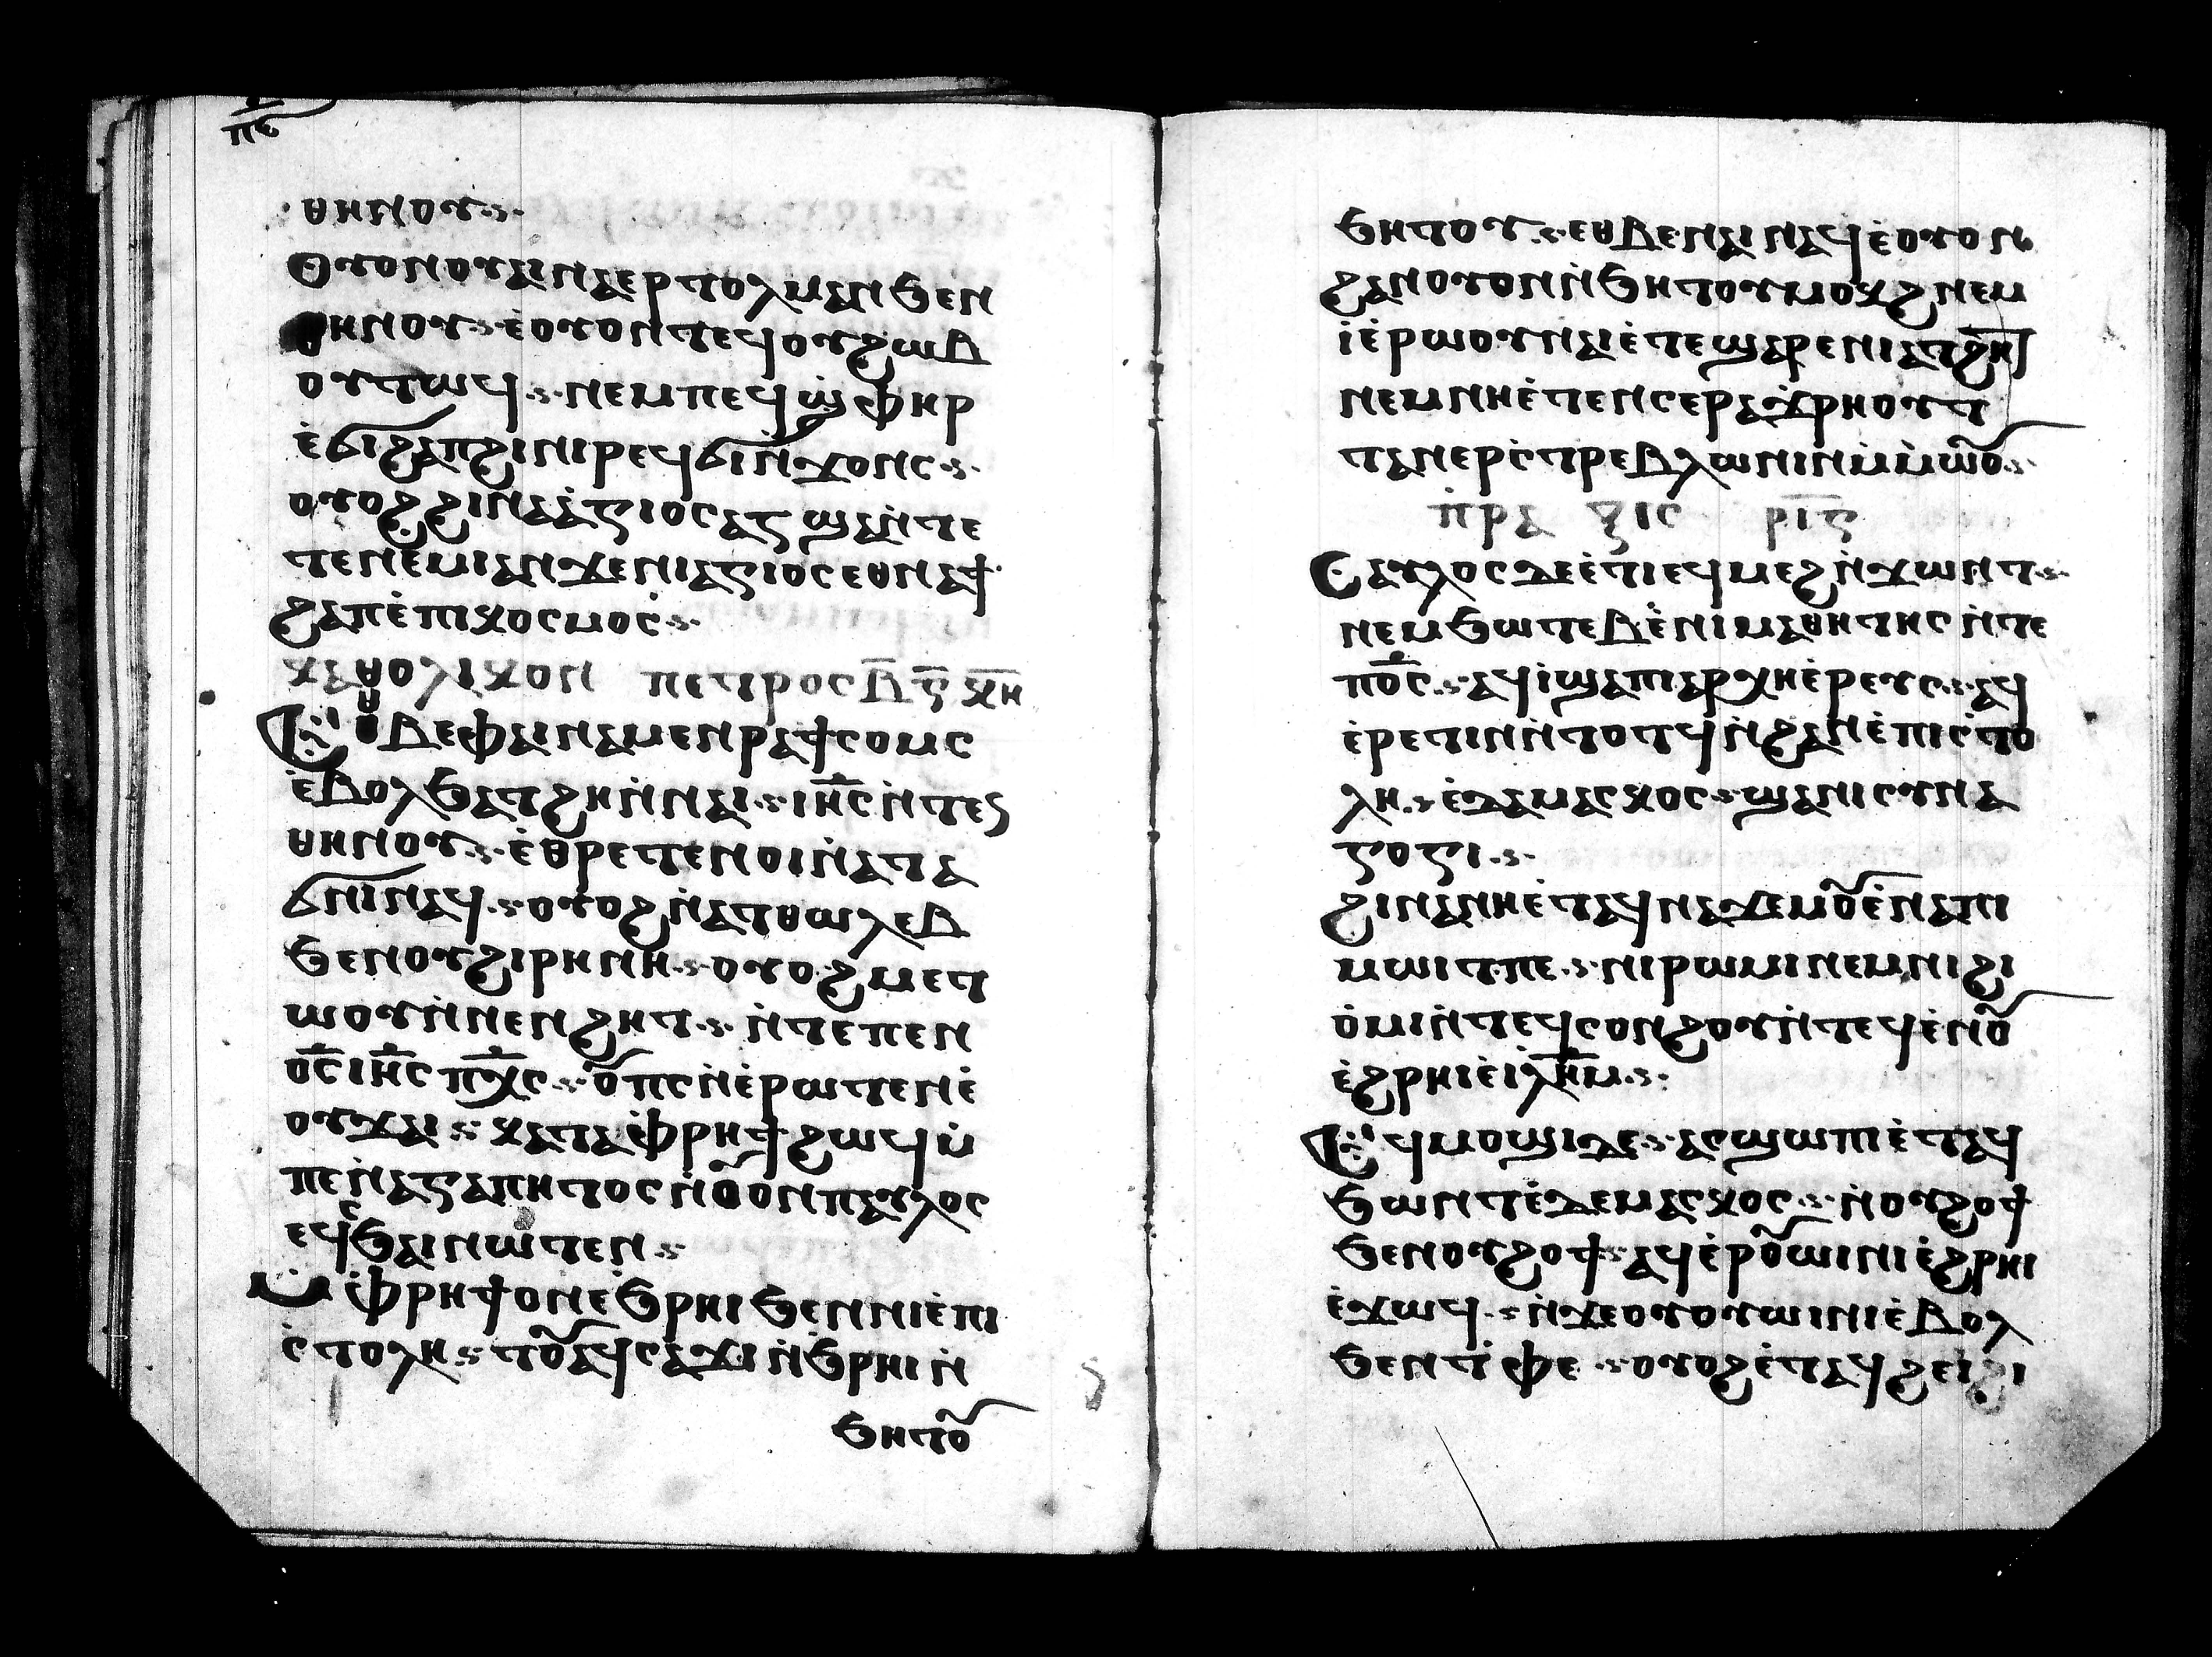 ⲡⲋ
ⲑⲏⲛⲟⲩ·ⲋ·
Ⲟⲩⲟⲛⲟⲩⲁⲓⲛⲁⲉⲣⲧⲟⲗⲙⲁⲛϧⲉⲛ
ⲑⲏⲛⲟⲩ·ⲋ·ⲉ̇ⲟⲩⲟⲛⲧⲉϥⲟⲩϩⲱⲃ
ⲟⲩⲧⲱϥ·ⲋ·ⲛⲉⲙⲡⲉϥϣ̇ⲫⲏⲣ
ⲉ̇ϭⲓϩⲁⲡϩⲓⲛⲓⲣⲉϥϭⲓⲛ̇ϫⲟⲛⲥ·ⲋ·
ⲟⲩⲟϩϩⲓⲛⲁⲁ̇ⲅⲓⲟⲥⲁⲅϣⲁⲛ̇ⲧⲉ
ⲧⲉⲛⲉ̇ⲙⲓⲁⲛϫⲉⲛⲓⲁⲅⲓⲟⲥⲉⲑⲛⲁϯ
ϩⲁⲡⲉ̇ⲡⲓⲕⲟⲥⲙⲟⲥ̇·ⲋ·
ⲕⲁⲑⲟⲗⲓⲕⲟⲛ ⲡⲉⲧⲣⲟⲥⲃ̅ⲅ̅ⲕ̅ⲏ̅
Ⲉⲑⲃⲉⲫⲁⲓⲛⲁⲙⲉⲛⲣⲁϯⲥⲟⲙⲥ
ⲉ̇ⲃⲟⲗϧⲁⲧϩⲏⲛ̇ⲛⲁⲓ·ⲋ·ⲓⲏ̅ⲥⲛ̇ⲧⲉⲥ
ⲑⲏⲛⲟⲩ·ⲋ·ⲉ̇ⲑⲣⲉⲧⲉⲛⲟⲓⲛ̇ⲁⲧⲁ
ϭⲛⲓⲛⲁϥ·ⲋ·ⲟⲩⲟϩⲛ̇ⲁⲧⲑⲱⲗⲉⲃ
ϧⲉⲛⲟⲩϩⲓⲣⲏⲛⲏ·ⲋ·ⲟⲩⲟϩⲙⲉⲧ
ⲱⲟⲩⲛ̇ⲛⲉⲛϩⲏⲧ·ⲋ·ⲛ̇ⲧⲉⲡⲉⲛ
ⲟ̅ⲥ̅ⲓⲏ̅ⲥⲡ̅ⲭ̅ⲥ·ⲋ·ⲟⲩⲡⲥⲛ̇ⲉ̇ⲣⲱⲧⲉⲛⲉ̇
ⲟⲩϫⲁⲓ·ⲋ·ⲕⲁⲧⲁⲙ̇ⲫⲣⲏϯϩⲱϥⲙ̇
ⲡⲉⲛ̇ⲁⲅⲁⲡⲏⲧⲟⲥⲛ̇ⲥⲟⲛⲡⲁⲩⲗⲟⲥ
ⲉϥⲥϧⲁⲓⲛⲱⲧⲉⲛ·ⲋ·
Ⲙ̇ⲫⲣⲏϯⲟⲛⲉ̇ϧⲣⲏⲓϧⲉⲛⲛⲓⲉ̇ⲡⲓ
ⲥ̇ⲧⲟⲗⲏ·ⲋ·ⲧⲟⲩⲁϥⲥⲁϫⲓⲛ̇ϧⲣⲏⲓⲛ̇
ϧⲏⲧⲟⲩ
ϧⲏⲧⲟⲩ·ⲋ·ⲉⲑⲃⲉⲛⲁⲓⲛⲁϥⲉ̇ⲟⲩⲟⲛ
ϩⲁⲛⲟⲩⲟⲛⲛ̇ϧⲏⲧⲟⲩⲙⲟⲕϩⲛⲉⲙ
ⲓⲉ̇ⲣⲱⲟⲩⲛⲁⲓⲉ̇ⲧⲉϣⲁⲣⲉⲛⲓⲁⲧϩⲏ
ⲛⲉⲙⲛⲏⲉ̇ⲧⲉⲛⲥⲉⲣⲁϫⲣⲏⲟⲩⲧ
ⲧⲁⲛⲉⲣⲥ̇ⲧⲣⲉⲃⲗⲱⲛⲓⲛⲙ̇ⲙ̇ⲱⲟⲩ·ⲋ·
ⲡ̇ⲣⲁⲝⲓⲥ ⲣ̅ⲓ̅ⲋ̅
Ⲥⲁⲩⲗⲟⲥⲇⲉⲉ̇ⲧⲓⲉϥⲙⲉϩⲛ̇ϫⲱⲛⲧ·ⲋ·
ⲛⲉⲙϧⲱⲧⲉⲃⲉ̇ⲛⲓⲙⲁⲑⲏⲧⲏⲥⲛ̇ⲧⲉ
ⲡⲟ̅ⲥ·ⲋ·ⲁϥⲓ̇ϣⲁⲡⲓⲁⲣⲭⲏⲉ̇ⲣⲉⲩⲥ·ⲋ·ⲁϥ
ⲉ̇ⲣⲉⲧⲓⲛⲛ̇ⲧⲟⲧϥⲛ̇ϩⲁⲛⲉ̇ⲡⲓⲥ̇ⲧⲟ
ⲗⲏ·ⲋ·ⲉ̇ⲇⲁⲙⲁⲥⲕⲟⲥ·ⲋ·ϣⲁⲛⲓⲥⲩⲛⲁ
ⲅⲟⲅⲓ·ⲋ·
ϩⲓⲛⲁⲛⲏⲉ̇ⲧⲁϥⲛⲁϫⲉⲙⲟⲩⲉ̇ⲛⲁⲡⲓ
ⲙⲱⲓⲧⲡⲉ·ⲋ·ⲛⲓⲣⲱⲙⲓⲛⲉⲙⲛⲓϩⲓ
ⲟ̇ⲙⲓⲛ̇ⲧⲉϥⲥⲟⲛϩⲟⲩⲛ̇ⲧⲉϥⲉ̇ⲛⲟⲩ
ⲉ̇ϩⲣⲏⲓⲉ̇ⲓⲗⲏ̅ⲙ·ⲋ·
Ⲉϥⲙⲟϣⲓⲇⲉ·ⲋ·ⲁⲥϣⲱⲡⲓⲉ̇ⲧⲁϥ
ϧⲱⲛⲧⲉ̇ⲇⲉⲙⲁⲥⲕⲟⲥ·ⲋ·ⲛ̇ⲟⲩϩⲟϯ
ϧⲉⲛⲟⲩϩⲟϯ·ⲋ·ⲁϥⲉ̇ⲣⲟⲩⲱⲓⲛⲓⲉ̇ϩⲣⲏⲓ
ⲉ̇ϫⲱϥ·ⲋ·ⲛ̇ϫⲉⲟⲩⲟⲩⲱⲓⲛⲓⲉ̇ⲃⲟⲗ
ϧⲉⲛⲧ̇ⲫⲉ·ⲋ·ⲟⲩⲟϩⲉ̇ⲧⲁϥϩⲉⲓϩⲓ